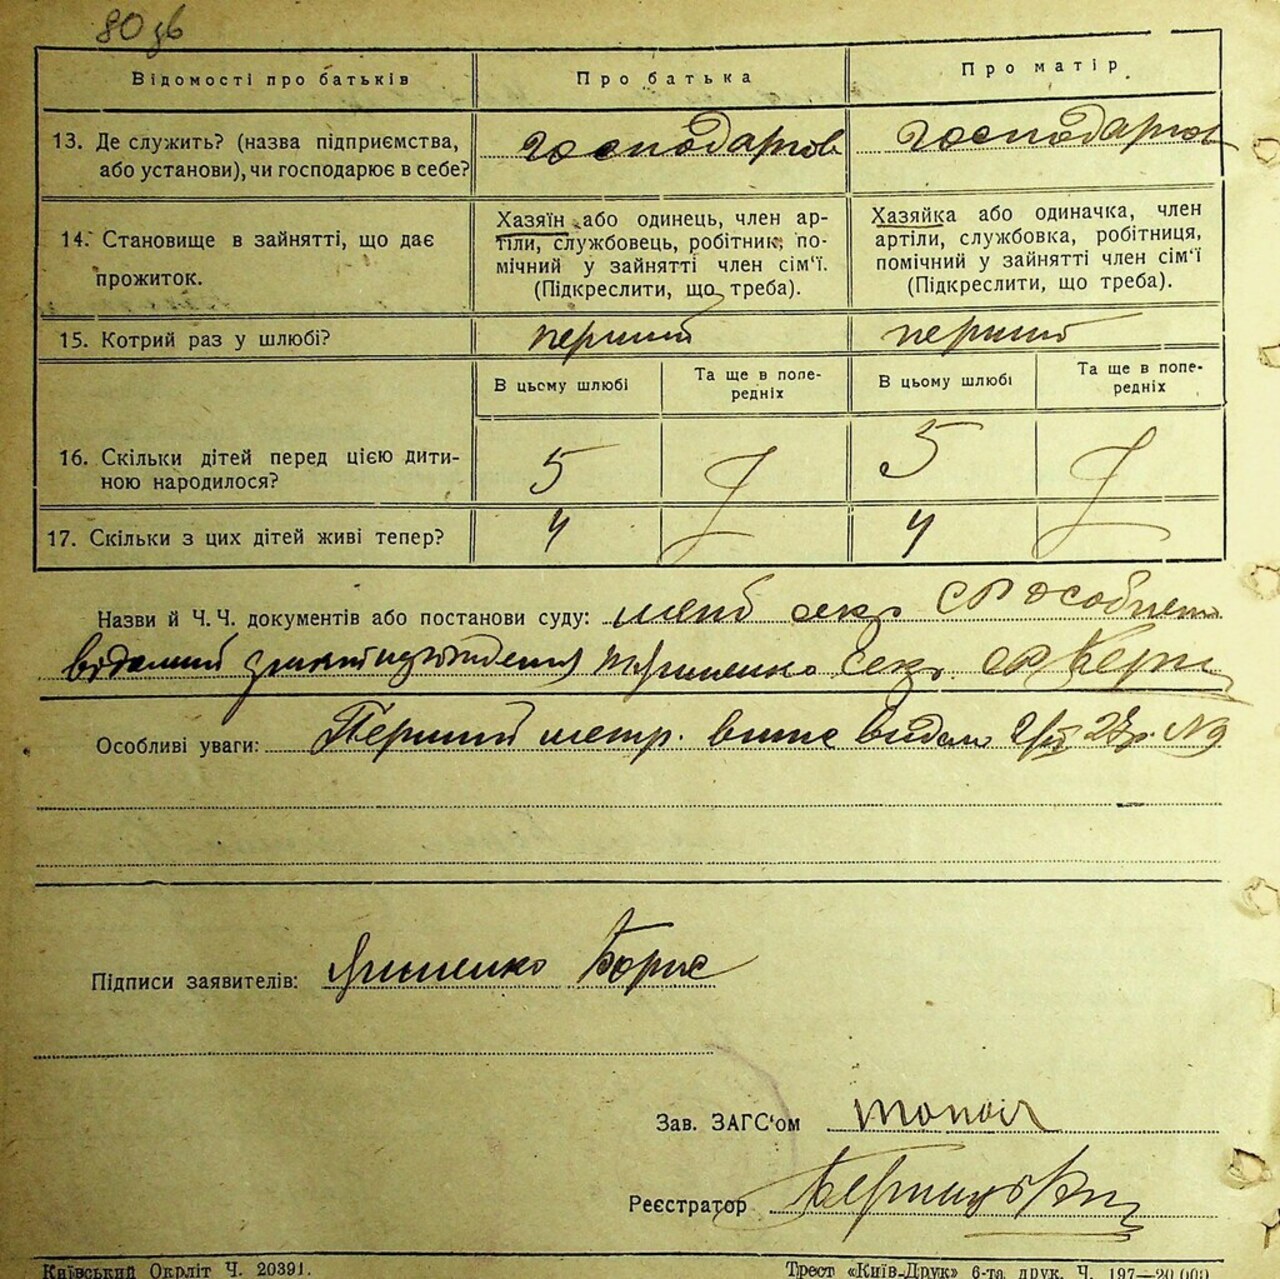 80 зв
Відомості про батьків
Про батька
Про матір
13. Де служить? (назва підприємства,
або установи), чи господарює в себе?
господарюв
господарюв
14. Становище в зайнятті, що дає
прожиток.
Хазяїн або одинець, член ар-
тіли, службовець, робітник, по-
мічний у зайнятті член сім'ї.
(Підкреслити, що треба).
Хазяйка або одиначка, член
артіли, службовка, робітниця,
помічний у зайнятті член сім'ї
(Підкреслити, що треба).
15. Котрий раз у шлюбі?
перший
перший
В цьому шлюбі
Та ще в попе-
редніх
В цьому шлюбі
Та ще в попе-
редніх
16. Скільки дітей перед цією дити-
ною народилося?
5
5
17. Скільки з цих дітей живі тепер?
4
4
Назви й Ч. Ч. документів або постанови суду: секр СР особисто
відомий Яришенко Секр. СР
Особливі уваги: Перший метр. випис видано 2/ІХ 27р. №9
Підписи заявителів: Яришенко Борис
Зав. ЗАГС'ом
Реєстратор
Київський Окрліт Ч. 20391.
Трест «Київ-Друк» 6-та друк. Ч. 197—20.000.